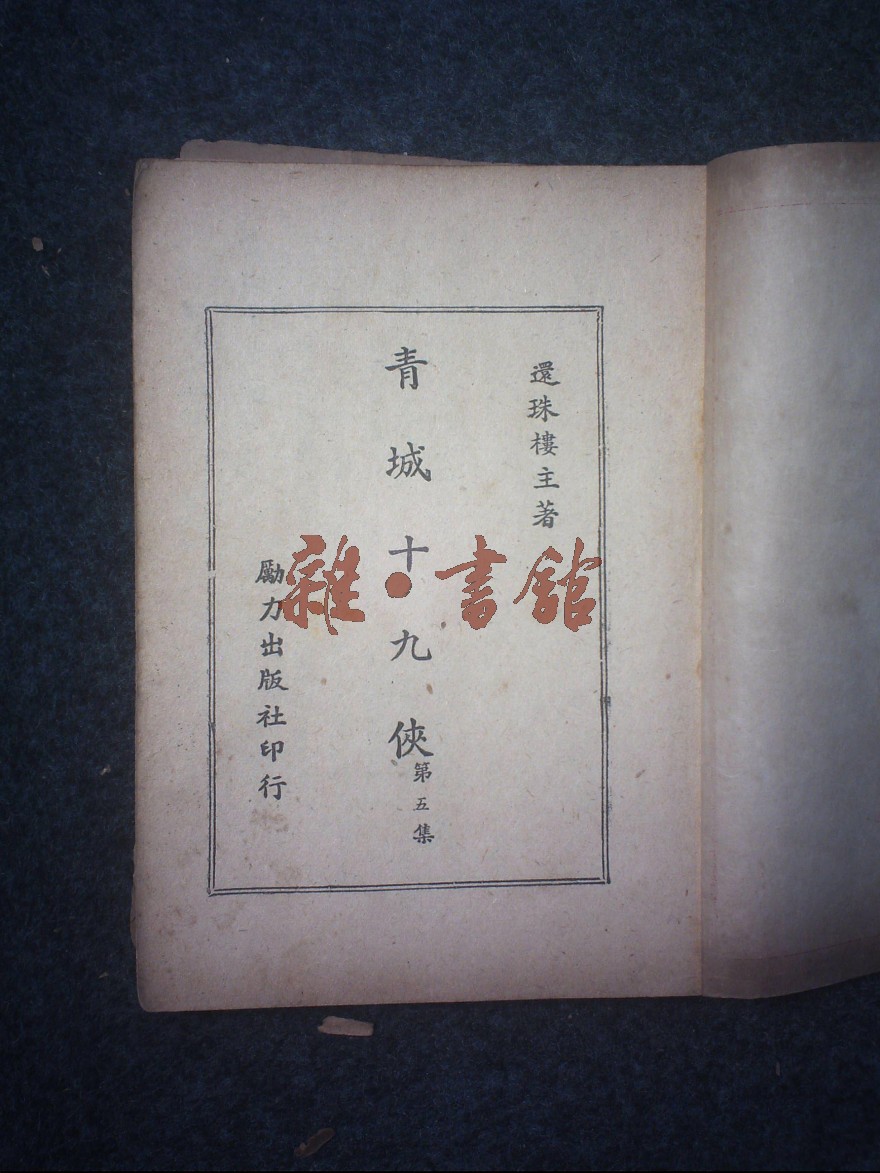 還珠樓主著
青城十九俠
第五集
勵力出版社印行
雜·書館